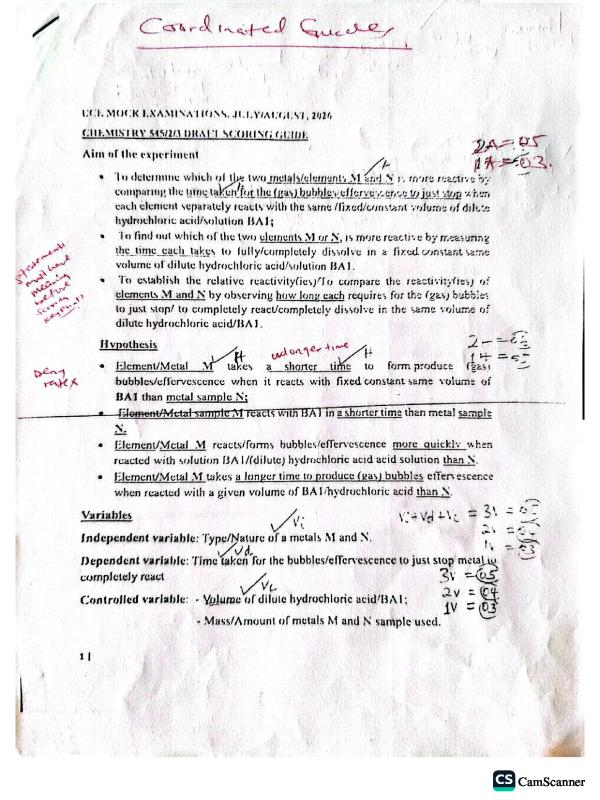 Coordinated Guide
UCE MOCK EXAMINATIONS, JULY/AUGUST, 2026
CHEMISTRY 545/2/3 DRAFT SCORING GUIDE
2A = 05
1A = 03.
Aim of the experiment
• To determine which of the two metals/elements M and N is more reactive by
comparing the time taken/for the (gas) bubbles/effervescence to just stop when
each element separately reacts with the same /fixed/constant volume of dilute
hydrochloric acid/solution BA1;
• To find out which of the two elements M or N, is more reactive by measuring
the time each takes to fully/completely dissolve in a fixed constant same
volume of dilute hydrochloric acid/solution BA1.
• To establish the relative reactivity(ies)/To compare the reactivity(ies) of
elements M and N by observing how long each requires for the (gas) bubbles
to just stop/ to completely react/completely dissolve in the same volume of
dilute hydrochloric acid/BA1.
statements must have meaning before scoring
Hypothesis
H
longer time
H
Deny rate x
• Element/Metal M takes a shorter time to form produce (gas)
bubbles/effervescence when it reacts with fixed constant same volume of
BA1 than metal sample N;
• Element/Metal sample M reacts with BA1 in a shorter time than metal sample
N.
• Element/Metal M reacts/forms bubbles/effervescence more quickly when
reacted with solution BA1/(dilute) hydrochloric acid acid solution than N.
• Element/Metal M takes a longer time to produce (gas) bubbles effervescence
when reacted with a given volume of BA1/hydrochloric acid than N.
Variables
Vi
Independent variable: Type/Nature of a metals M and N.
Vd
Dependent variable: Time taken for the bubbles/effervescence to just stop metal to
completely react
3V = 05
2V = 04
1V = 03
Vc
Controlled variable: - Volume of dilute hydrochloric acid/BA1;
- Mass/Amount of metals M and N sample used.
1 |
CS CamScanner